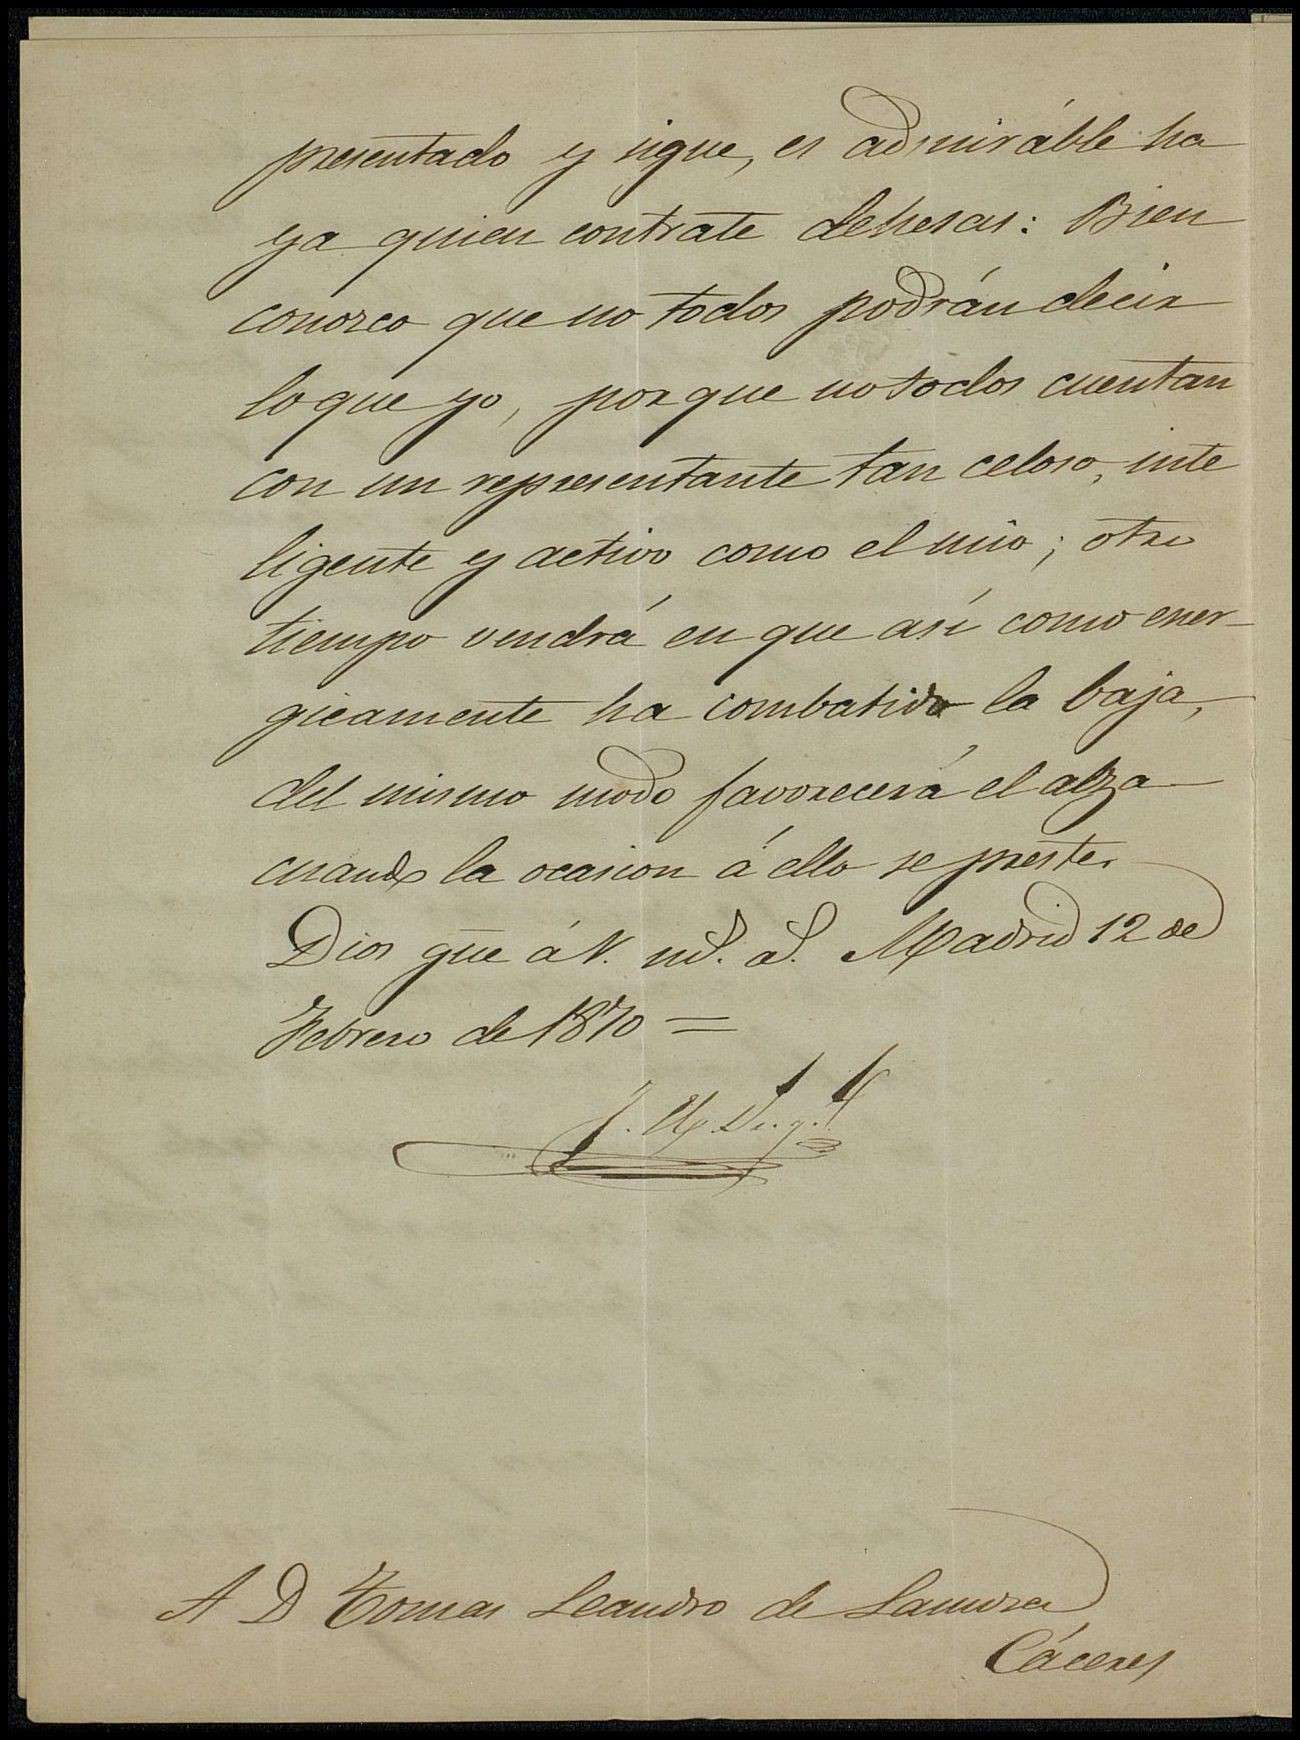 presentado y sigue, es admiráble ha
ya quien contrate dehesas: Bien
conozco que no todos podrán decir
lo que yo, porque no todos cuentan
con un representante tan celoso, inte
ligente y activo como el mio; otro
tiempo vendrá en que así como ener-
gicamente ha combatido la baja,
del mismo modo favorecerá el alza
cuando la ocasion á ello se preste.
Dios gue á V. ms. as. Madrid 12 de
Febrero de 1870=
A D Tomas Leandro de
Cáceres